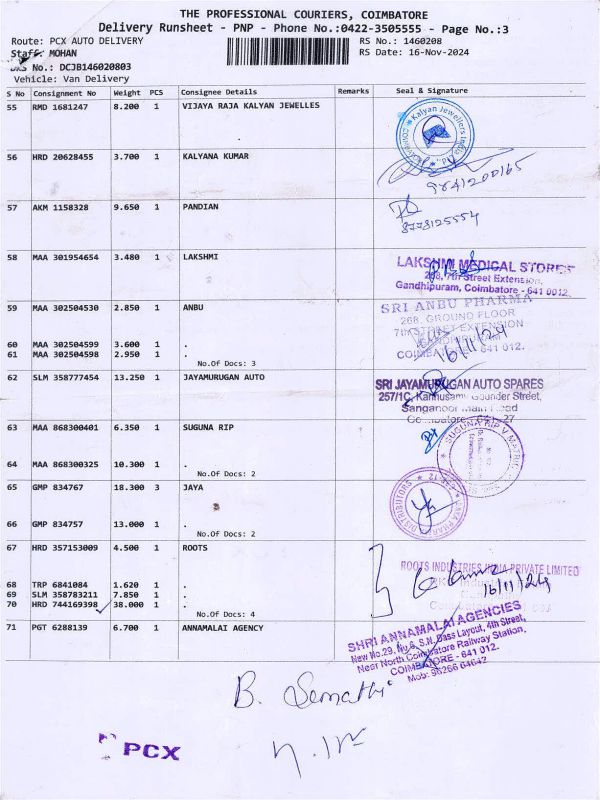 THE PROFESSIONAL COURIERS, COIMBATORE
Delivery Runsheet - PNP - Phone No.:0422-3505555 - Page No.:3
Route: PCX AUTO DELIVERY
RS No.: 1460208
Staff: MOHAN
RS Date: 16-Nov-2024
No.: DCJB146020803
Vehicle: Van Delivery
S No Consignment No Weight PCS Consignee Details Remarks Seal & Signature
55 RMD 1681247 8.200 1 VIJAYA RAJA KALYAN JEWELLES
Kalyan Jewellers India
56 HRD 20628455 3.700 1 KALYANA KUMAR
9841200165
57 AKM 1158328 9.650 1 PANDIAN
8778125554
58 MAA 301954654 3.480 1 LAKSHMI
LAKSHMI MEDICAL STORES
268, 7th Street Extension,
Gandhipuram, Coimbatore - 641 0012.
59 MAA 302504530 2.850 1 ANBU
SRI ANBU PHARMA
268, GROUND FLOOR
7th STREET EXTENSION
GANDHIPURAM
COIMBATORE - 641 012.
16/11/24
60 MAA 302504599 3.600 1 .
61 MAA 302504598 2.950 1 .
No.Of Docs: 3
62 SLM 358777454 13.250 1 JAYAMURUGAN AUTO
SRI JAYAMURUGAN AUTO SPARES
257/1C, Kannusamy Gounder Street,
Sanganoor Main Road
63 MAA 868300401 6.350 1 SUGUNA RIP
SUGUNA RIP V MATRIC
64 MAA 868300325 10.300 1 .
No.Of Docs: 2
65 GMP 834767 18.300 3 JAYA
DISTRIBUTORS
66 GMP 834757 13.000 1 .
No.Of Docs: 2
67 HRD 357153009 4.500 1 ROOTS
ROOTS INDUSTRIES INDIA PRIVATE LIMITED
16/11/24
68 TRP 6841084 1.620 1 .
69 SLM 358783211 7.850 1 .
70 HRD 744169398 38.000 1 .
No.Of Docs: 4
71 PGT 6288139 6.700 1 ANNAMALAI AGENCY
SHRI ANNAMALAI AGENCIES
New No.29, No 6, S.N. Dass Layout, 4th Street,
Near North Coimbatore Railway Station,
COIMBATORE - 641 012.
Mob: 96266 64642
B.
PCX